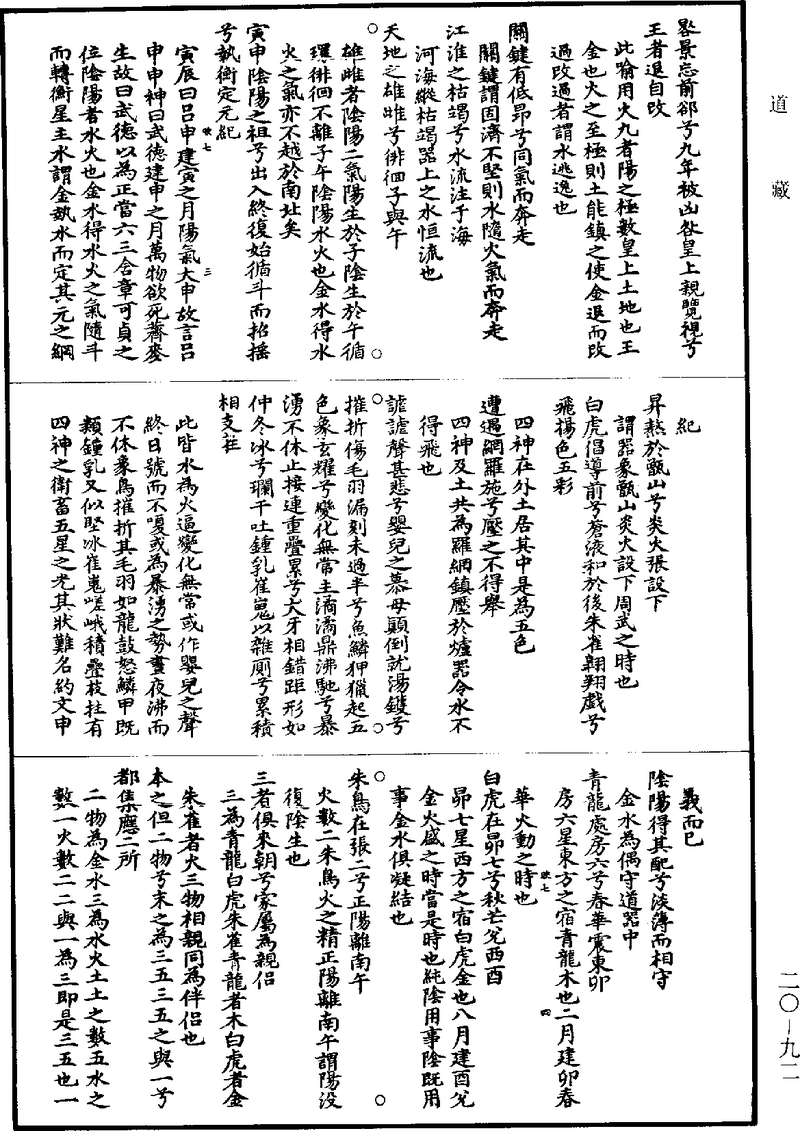 道藏
晷景忘前郤兮九年被凶咎皇上親覽視兮
王者退自改
此喻用火九者陽之極數皇上土地也王
金也火之至極則土能鎮之使金退而改
過改過者謂水逃逸也
關鍵有低昂兮同氣而奔走
關鍵謂固濟不堅則水隨火氣而奔走
江淮之枯竭兮水流注于海
河海縱枯竭器上之水恒流也
天地之雄雌兮徘徊子與午
雄雌者陰陽二氣陽生於子陰生於午循
環徘徊不離子午陰陽水火也金水得水
火之氣亦不越於南北矣
寅申陰陽之祖兮出入終復始循斗而招摇
兮執衡定元紀
寅辰曰吕申建寅之月陽氣大申故言吕
映七 三
申申神曰武德建申之月萬物欲死薺麥
生故曰武德以為正當六三含章可貞之
位陰陽者水火也金水得水火之氣隨斗
而轉衡星主水謂金執水而定其元之綱
紀
昇熬於甑山兮炎火張設下
謂器象甑山炎火設下周武之時也
白虎倡導前兮蒼液和於後朱雀翱翔戲兮
飛揚色五彩
四神在外土居其中是為五色
遭遇網羅施兮壓之不得舉
四神及土共為羅網鎮壓於爐器令水不
得飛也
謔謔聲甚悲兮嬰兒之慕母顛倒就湯鑊兮
摧折傷毛羽漏刻未過半兮魚鱗狎獵起五
色象玄耀兮變化無常主潏潏鼎沸馳兮暴
湧不休止接連重疊累兮犬牙相錯距形如
仲冬冰兮瓓干吐鍾乳崔嵬以雜厠兮累積
相支拄
此皆水為火逼變化無常或作嬰兒之聲
終日號而不嗄或為暴湧之勢晝夜沸而
不休象鳥摧折其毛羽如龍鼓怒鱗甲既
類鍾乳又似堅冰崔嵬嵯峨積疊枝拄有
四神之衛畜五星之光其狀難名約文申
義而已
陰陽得其配兮淡薄而相守
金水為偶守道器中
青龍處房六兮春華震東卯
房六星東方之宿青龍木也二月建卯春
映七 四
華火動之時也
白虎在昴七兮秋芒兌西酉
昴七星西方之宿白虎金也八月建酉兌
金火盛之時當是時也純陰用事陰既用
事金水俱凝結也
朱鳥在張二兮正陽離南午
火數二朱鳥火之精正陽離南午謂陽没
復陰生也
三者俱來朝兮家屬為親侣
三為青龍白虎朱雀青龍者木白虎者金
朱雀者火三物相親同為伴侣也
本之但二物兮末之為三五三五之與一兮
都集應二所
二物為金水三為水火土土之數五水之
數一火數二二與一為三即是三五也一
二〇—九二